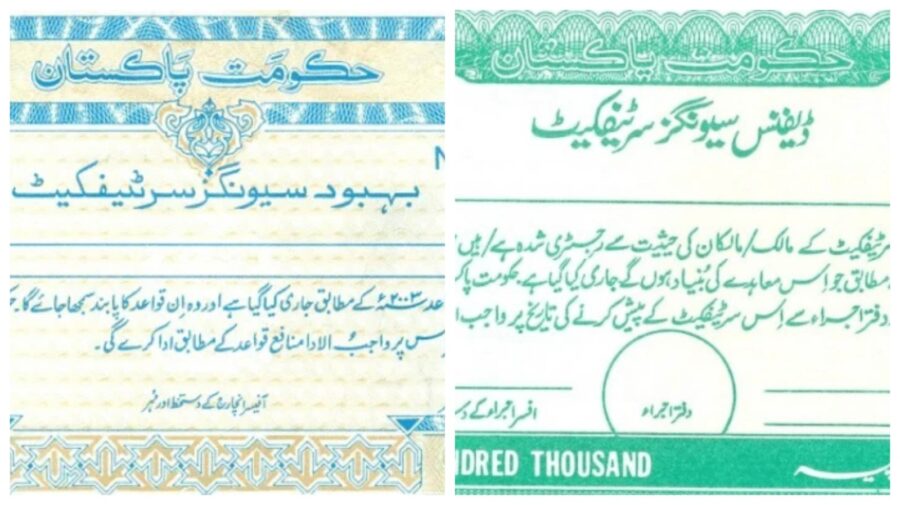 حکومت پاکستان
N
بہبود سیونگز سرٹیفکیٹ
عد سنہ ۲۰۰۳ء کے مطابق جاری کیا گیا ہے اور وہ ان قواعد کا پابند سمجھا جائے گا۔
س پر واجب الادا منافع قواعد کے مطابق ادا کرے گی۔
آفیسر انچارج کے دستخط اور مہر
حکومت پاکستان
ڈیفنس سیونگز سرٹیفکیٹ
سرٹیفکیٹ کے مالک/مالکان کی حیثیت سے رجسٹری شدہ ہے/ہیں
مطابق جو اس معاہدے کی بنیاد ہوں گے جاری کیا گیا ہے، حکومت پاک
دفتر اجراء سے اس سرٹیفکیٹ کے پیش کرنے کی تاریخ پر واجب ا
دفتر اجراء
افسر اجراء کے دس
NDRED THOUSAND